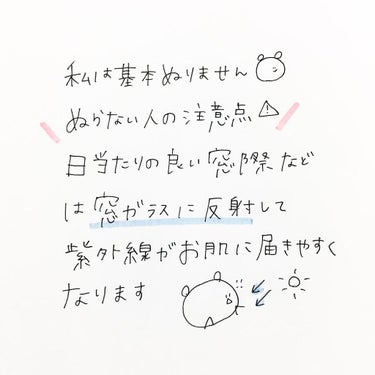 私は基本ぬりません
ぬらない人の注意点
日当たりの良い窓際など
は窓ガラスに反射して
紫外線がお肌に届きやすく
なります